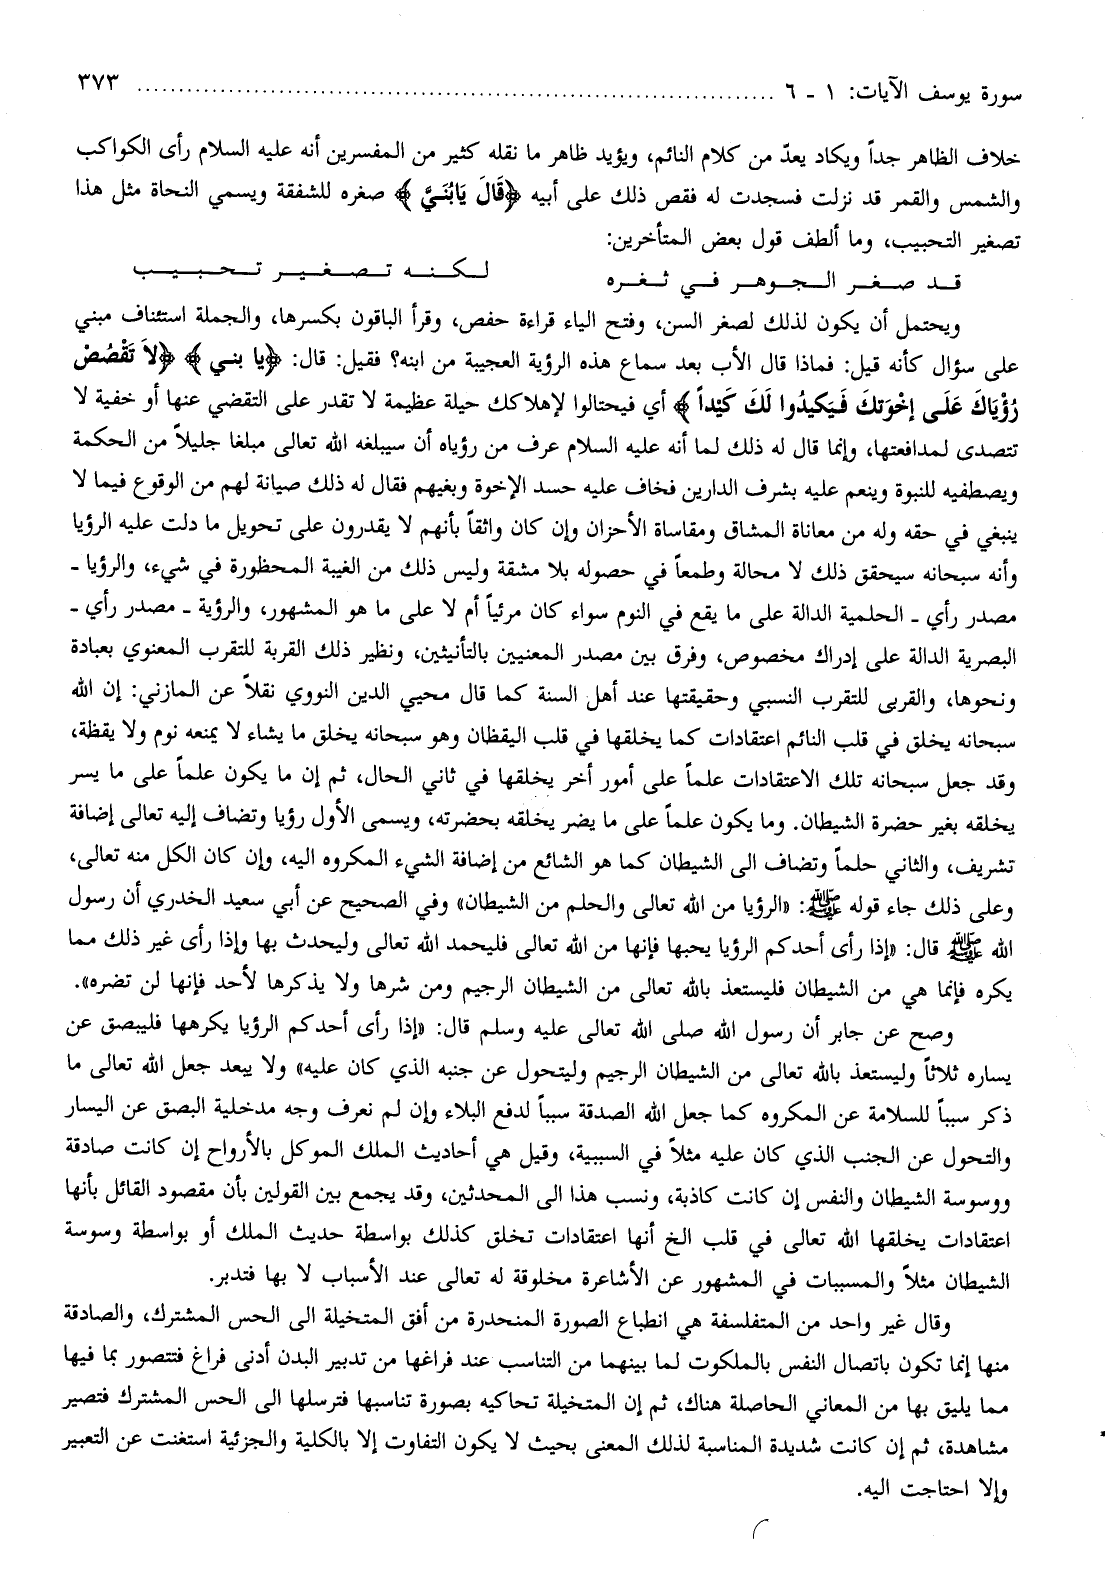 سورة يوسف الآيات: ١ ـ ٦ ................................................ ٣٧٣
خلاف الظاهر جداً ويكاد يعدّ من كلام النائم، ويؤيد ظاهر ما نقله كثير من المفسرين أنه عليه السلام رأى الكواكب
والشمس والقمر قد نزلت فسجدت له فقص ذلك على أبيه ﴿قَالَ يَابُنَيَّ﴾ صغره للشفقة ويسمي النحاة مثل هذا
تصغير التحبيب، وما ألطف قول بعض المتأخرين:
قد صغر الجوهر في ثغره لكنه تصغير تحبيب
ويحتمل أن يكون لذلك لصغر السن، وفتح الياء قراءة حفص، وقرأ الباقون بكسرها، والجملة استئناف مبني
على سؤال كأنه قيل: فماذا قال الأب بعد سماع هذه الرؤية العجيبة من ابنه؟ فقيل: قال: ﴿يا بني﴾ ﴿لاَ تَقْصُصْ
رُؤْيَاكَ عَلَى إخْوَتكَ فَيَكيدُوا لَكَ كَيْداً﴾ أي فيحتالوا لإهلاكك حيلة عظيمة لا تقدر على التقضي عنها أو خفية لا
تتصدى لمدافعتها، وإنما قال له ذلك لما أنه عليه السلام عرف من رؤياه أن سيبلغه الله تعالى مبلغا جليلاً من الحكمة
ويصطفيه للنبوة وينعم عليه بشرف الدارين فخاف عليه حسد الإخوة وبغيهم فقال له ذلك صيانة لهم من الوقوع فيما لا
ينبغي في حقه وله من معاناة المشاق ومقاساة الأحزان وإن كان واثقاً بأنهم لا يقدرون على تحويل ما دلت عليه الرؤيا
وأنه سبحانه سيحقق ذلك لا محالة وطمعاً في حصوله بلا مشقة وليس ذلك من الغيبة المحظورة في شيء، والرؤيا ـ
مصدر رأي ـ الحلمية الدالة على ما يقع في النوم سواء كان مرئياً أم لا على ما هو المشهور، والرؤية ـ مصدر رأي ـ
البصرية الدالة على إدراك مخصوص، وفرق بين مصدر المعنيين بالتأنيثين، ونظير ذلك القربة للتقرب المعنوي بعبادة
ونحوها، والقربى للتقرب النسبي وحقيقتها عند أهل السنة كما قال محيي الدين النووي نقلاً عن المازني: إن الله
سبحانه يخلق في قلب النائم اعتقادات كما يخلقها في قلب اليقظان وهو سبحانه يخلق ما يشاء لا يمنعه نوم ولا يقظة،
وقد جعل سبحانه تلك الاعتقادات علماً على أمور أخر يخلقها في ثاني الحال، ثم إن ما يكون علماً على ما يسر
يخلقه بغير حضرة الشيطان. وما يكون علماً على ما يضر يخلقه بحضرته، ويسمى الأول رؤيا وتضاف إليه تعالى إضافة
تشريف، والثاني حلماً وتضاف الى الشيطان كما هو الشائع من إضافة الشيء المكروه اليه، وإن كان الكل منه تعالى،
وعلى ذلك جاء قوله ﷺ: «الرؤيا من الله تعالى والحلم من الشيطان» وفي الصحيح عن أبي سعيد الخدري أن رسول
الله ﷺ قال: «إذا رأى أحدكم الرؤيا يحبها فإنها من الله تعالى فليحمد الله تعالى وليحدث بها وإذا رأى غير ذلك مما
يكره فإنما هي من الشيطان فليستعذ بالله تعالى من الشيطان الرجيم ومن شرها ولا يذكرها لأحد فإنها لن تضره».
وصح عن جابر أن رسول الله صلى الله تعالى عليه وسلم قال: «إذا رأى أحدكم الرؤيا يكرهها فليبصق عن
يساره ثلاثاً وليستعذ بالله تعالى من الشيطان الرجيم وليتحول عن جنبه الذي كان عليه» ولا يبعد جعل الله تعالى ما
ذكر سبباً للسلامة عن المكروه كما جعل الله الصدقة سبباً لدفع البلاء وإن لم نعرف وجه مدخلية البصق عن اليسار
والتحول عن الجنب الذي كان عليه مثلاً في السببية، وقيل هي أحاديث الملك الموكل بالأرواح إن كانت صادقة
ووسوسة الشيطان والنفس إن كانت كاذبة، ونسب هذا الى المحدثين، وقد يجمع بين القولين بأن مقصود القائل بأنها
اعتقادات يخلقها الله تعالى في قلب الخ أنها اعتقادات تخلق كذلك بواسطة حديث الملك أو بواسطة وسوسة
الشيطان مثلاً والمسببات في المشهور عن الأشاعرة مخلوقة له تعالى عند الأسباب لا بها فتدبر.
وقال غير واحد من المتفلسفة هي انطباع الصورة المنحدرة من أفق المتخيلة الى الحس المشترك، والصادقة
منها إنما تكون باتصال النفس بالملكوت لما بينهما من التناسب عند فراغها من تدبير البدن أدنى فراغ فتتصور بما فيها
مما يليق بها من المعاني الحاصلة هناك، ثم إن المتخيلة تحاكيه بصورة تناسبها فترسلها الى الحس المشترك فتصير
مشاهدة، ثم إن كانت شديدة المناسبة لذلك المعنى بحيث لا يكون التفاوت إلا بالكلية والجزئية استغنت عن التعبير
وإلا احتاجت اليه.